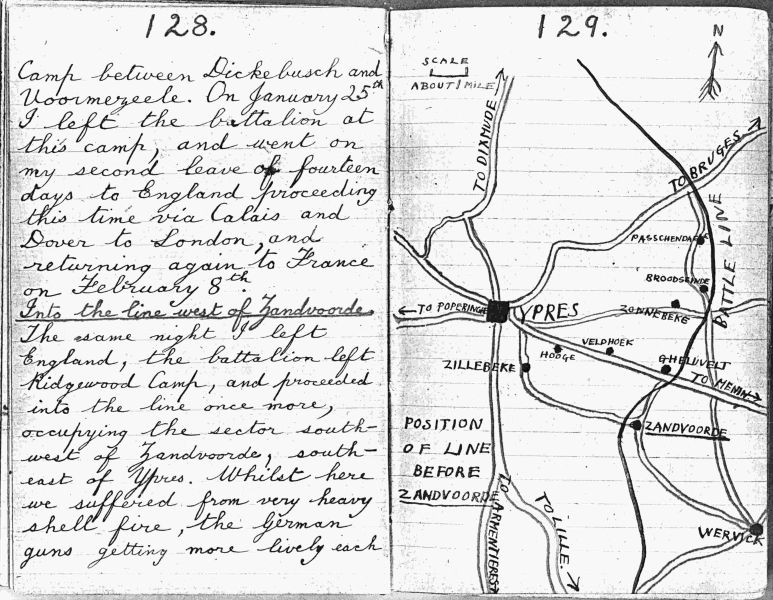 128.
Camp between Dickebusch and
Voormezeele. On January 25th
I left the battalion at
this camp, and went on
my second leave of fourteen
days to England proceeding
this time via Calais and
Dover to London, and
returning again to France
on February 8th.
Into the line west of Zandvoorde
The same night I left
England, the battalion left
Ridgewood Camp, and proceeded
into the line once more,
occupying the sector south-
west of Zandvoorde, south-
east of Ypres. Whilst here
we suffered from very heavy
shell fire, the German
guns getting more lively each
129.
N
SCALE
ABOUT 1 MILE
TO DIXMUDE
TO BRUGES
PASSCHENDAELE
BATTLE LINE
BROODSEINDE
TO POPERINGE
YPRES
ZONNEBEKE
VELDHOEK
HOOGE
GHELUVELT
ZILLEBEKE
TO MENIN
POSITION
OF LINE
BEFORE
ZANDVOORDE
ZANDVOORDE
TO ARMENTIERES
TO LILLE.
WERVICK